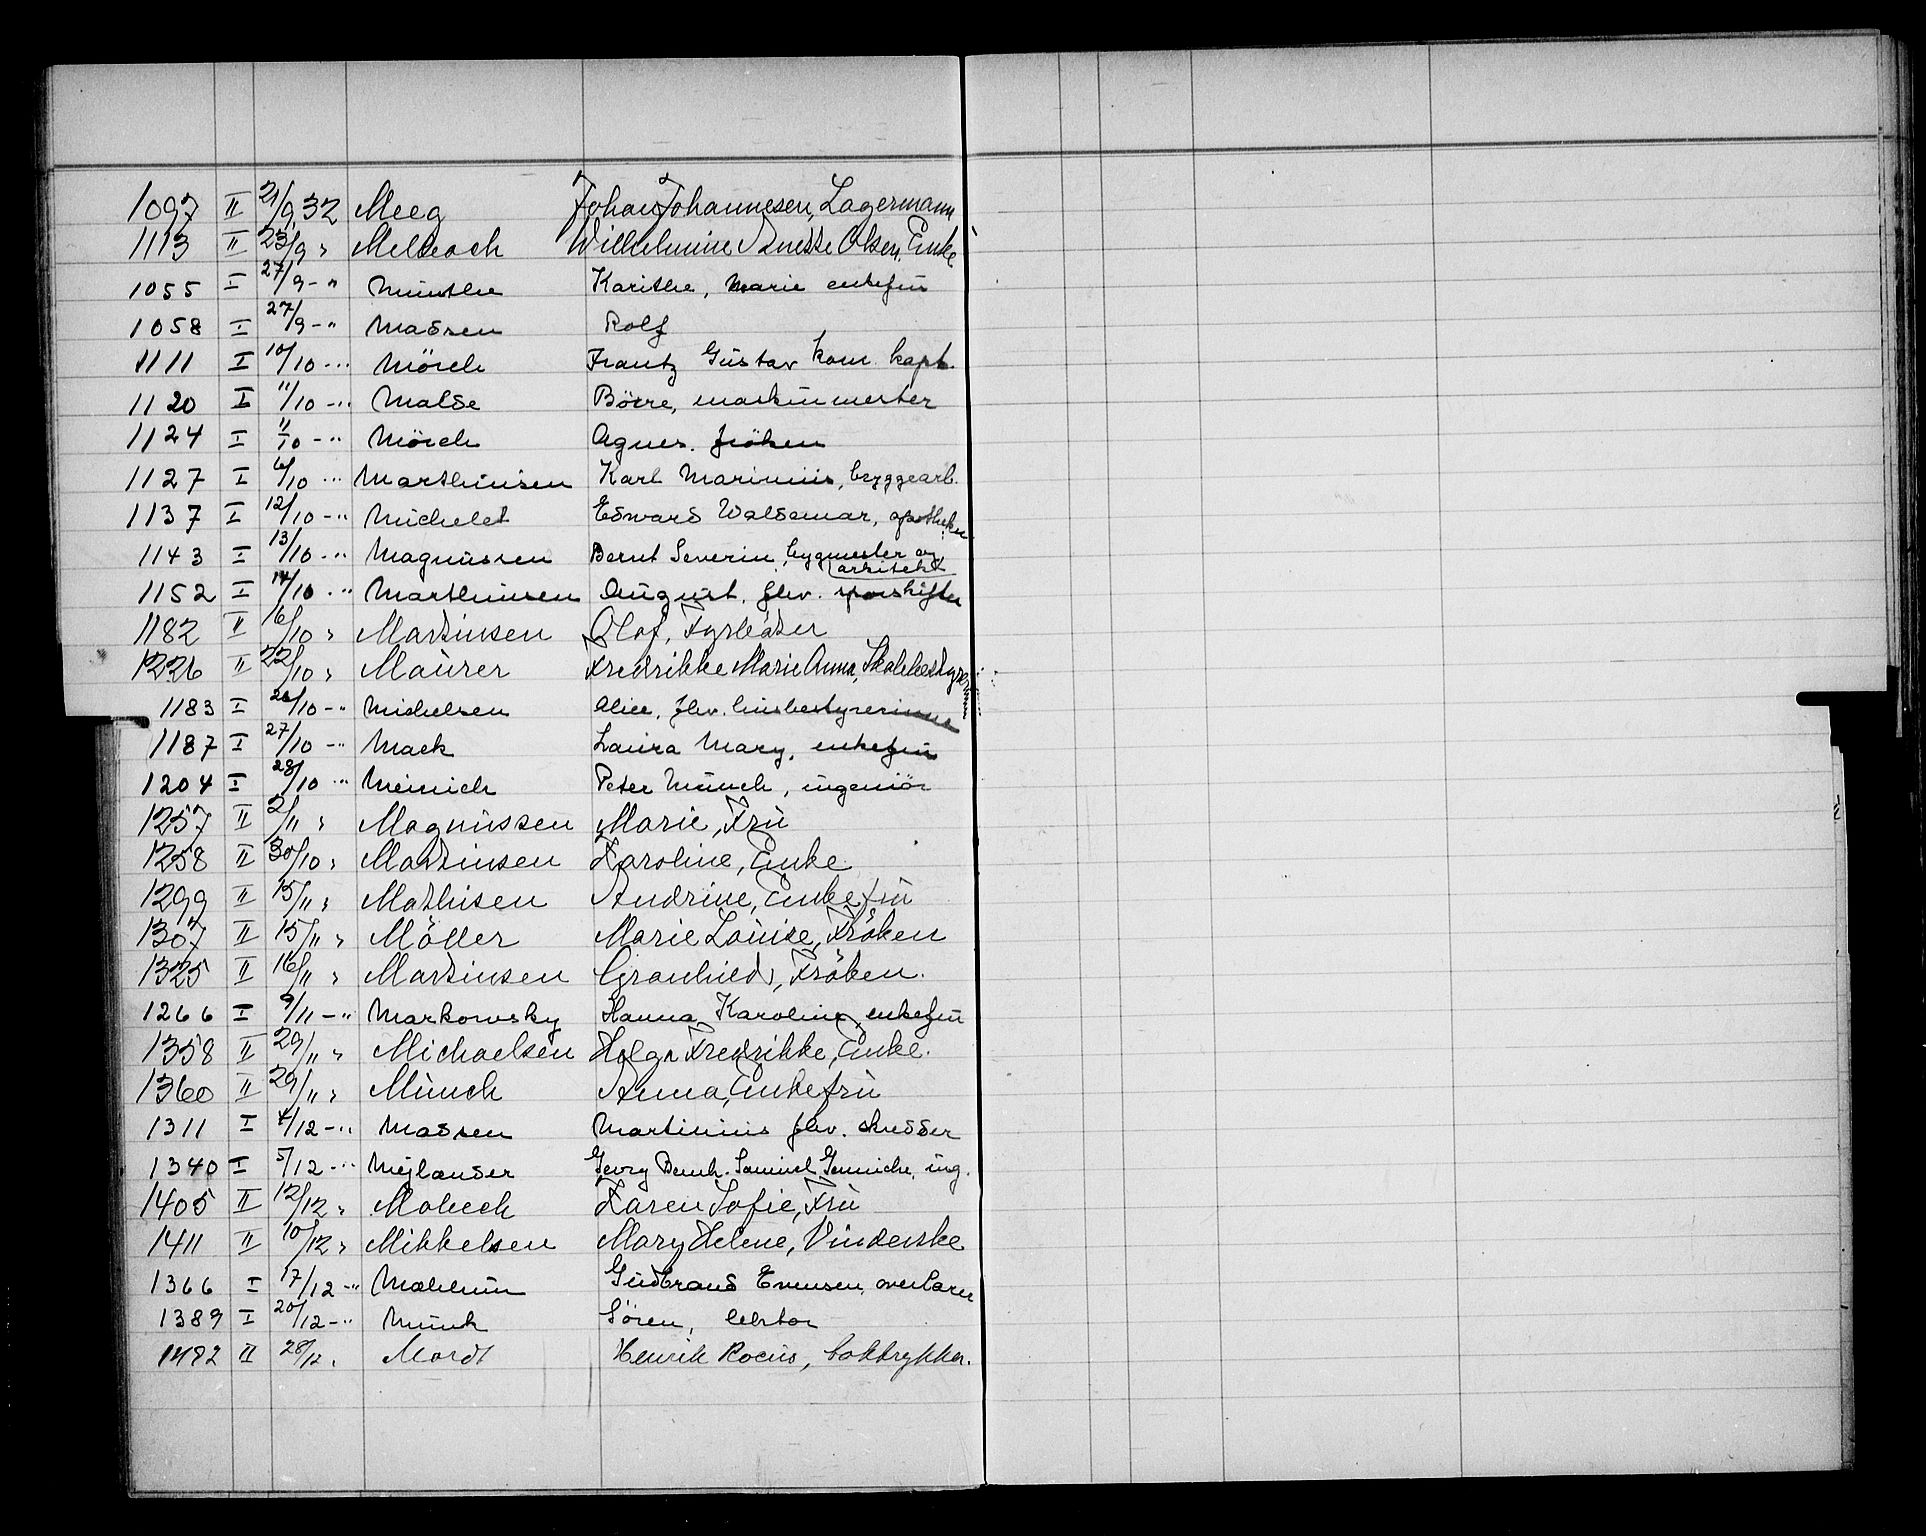 1097 II 21/9 32 Meeg Johan Johannesen, Lagermann
1113 II 23/9 " Melbach Wilhelmine Anette Olsen, Enke
1055 I 27/9 - " Münthe Karithe, Marie enkefru
1058 I 27/9 - " Madsen Rolf
1111 I 10/10 - " Mörch Frantz Gustav kom. kapt.
1120 I 11/10 - " Malde Börre, maskinmester
1124 I 11/10 - " Mörch Agnes. fröken
1127 I 6/10 - " Marthinsen Karl Marinius, bryggearb.
1137 I 12/10 - " Michelet Edvard Waldemar, apotheker
1143 I 13/10 - " Magnussen Bernt Severin, bygmester og arkitekt
1152 I 14/10 - " Marthinsen August, fhv. sporskifter
1182 II 16/10 " Martinsen Olaf, Fyrböter
1226 II 22/10 " Maurer Fredrikke Marie Anna, Skolebestyrerinne
1183 I 26/10 - " Michelsen Alice, fhv. husbestyrerinne
1187 I 27/10 - " Mack Laura Mary, enkefru
1204 I 28/10 - " Meinich Peter Munch, ingeniör
1257 II 2/11 " Magnussen Marie, Fru
1258 II 30/10 " Martinsen Karoline, Enke
1299 II 15/11 " Mathisen Andrine, Enkefru
1307 II 15/11 " Möller Marie Louise, Fröken
1325 II 16/11 " Martinsen Gronhild, Fröken.
1266 I 9/11 - " Markowsky Hanna Karoline, enkefru
1358 II 29/11 " Michaelsen Helga Fredrikke, Enke.
1360 II 29/11 " Münch Anna, Enkefru
1311 I 4/12 - " Madsen Martinius fhv. skredder
1340 I 5/12 - " Mejlænder Georg Bernh. Samuel, ing.
1405 II 12/12 " Mobech Karen Sofie, Fru
1411 II 10/12 " Mikkelsen Mary Helene, Vinderske
1366 I 17/12 - " Mæhlum Gudbrand Evensen, overlærer
1389 I 20/12 - " Munk Sören, lektor
1482 II 28/12 " Mordt Henrik Rocus, boktrykker.